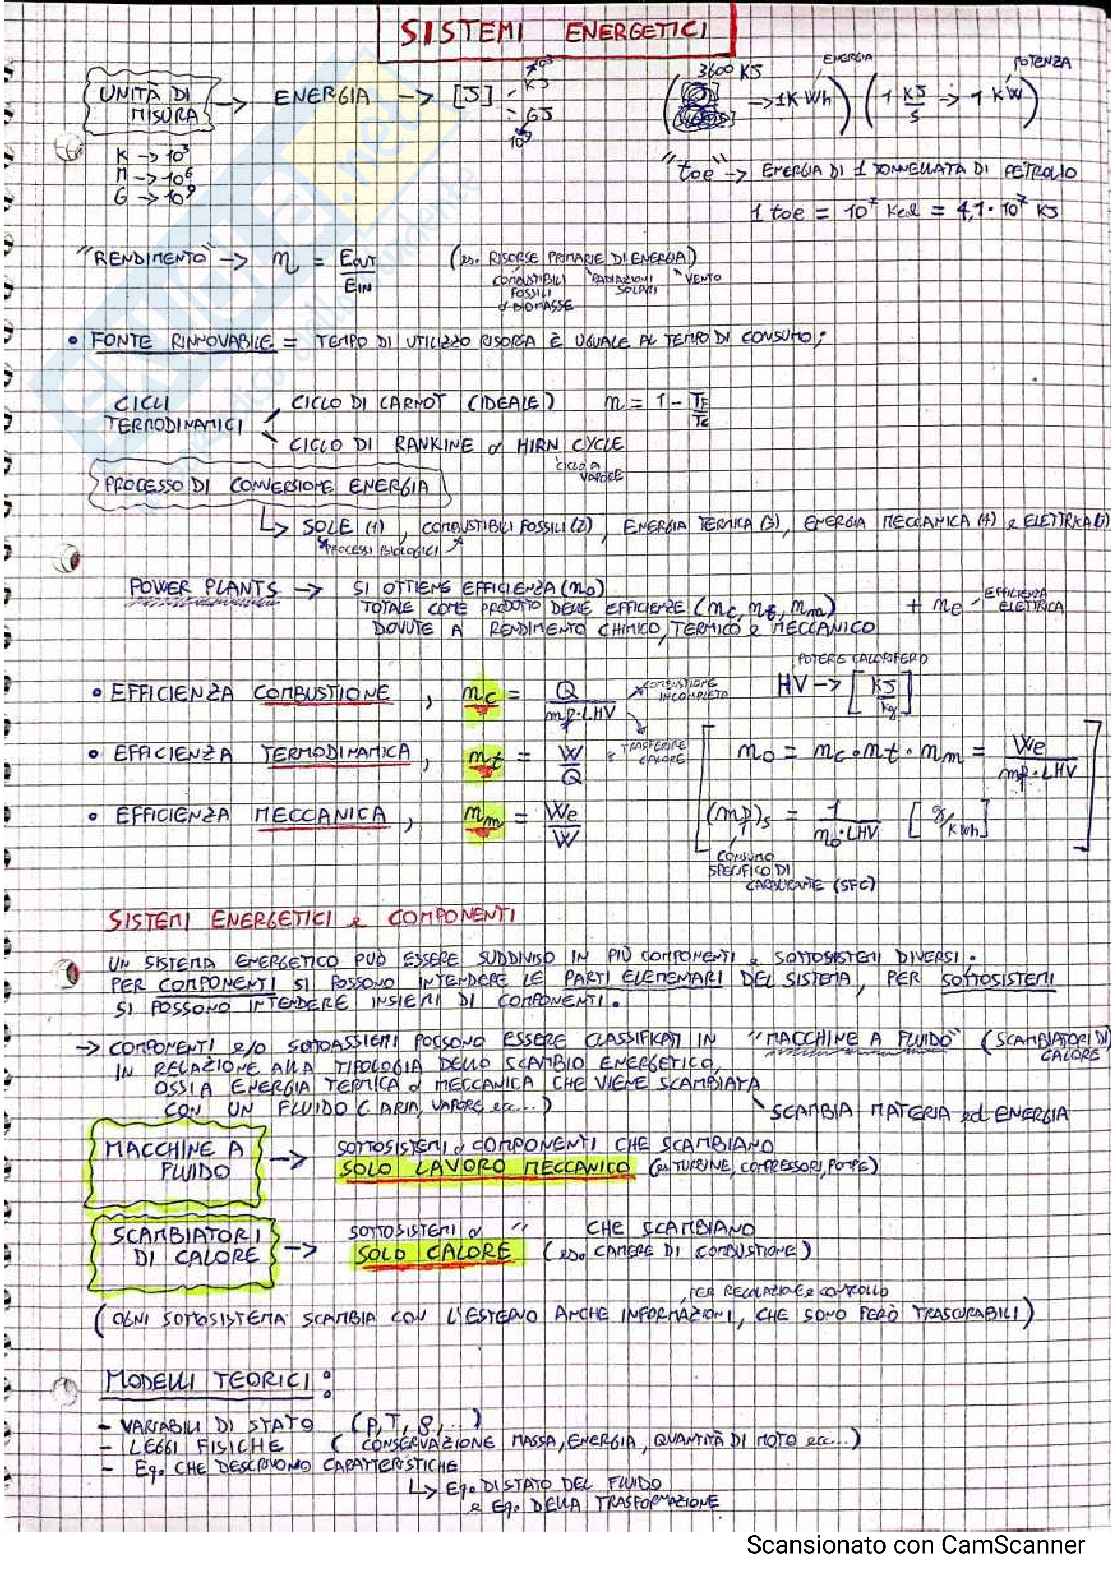 SISTEMI ENERGETICI
UNITÀ DI MISURA → ENERGIA → [J] KJ 10³ GJ 10⁹
(3600 KJ → 1 KWh) ENERGIA (1 KJ/s → 1 KW) POTENZA
K → 10³
M → 10⁶
G → 10⁹
"toe" → ENERGIA DI 1 TONNELLATA DI PETROLIO
1 toe = 10⁷ Kcal = 4,1·10⁷ KJ
"RENDIMENTO" → η = EOUT/EIN (es. RISORSE PRIMARIE DI ENERGIA)
COMBUSTIBILI FOSSILI o BIOMASSE
RADIAZIONI SOLARI
VENTO
• FONTE RINNOVABILE = TEMPO DI UTILIZZO RISORSA È UGUALE AL TEMPO DI CONSUMO;
CICLI TERMODINAMICI
CICLO DI CARNOT (IDEALE) η = 1 - TF/TC
CICLO DI RANKINE o HIRN CYCLE
CICLO A VAPORE
PROCESSO DI CONVERSIONE ENERGIA
↳ SOLE (1), COMBUSTIBILI FOSSILI (2), ENERGIA TERMICA (3), ENERGIA MECCANICA (4) e ELETTRICA (5)
PROCESSI BIOLOGICI
POWER PLANTS → SI OTTIENE EFFICIENZA (η0)
TOTALE COME PRODOTTO DELLE EFFICIENZE (ηc, ηt, ηm) + ηe EFFICIENZA ELETTRICA
DOVUTE A RENDIMENTO CHIMICO, TERMICO e MECCANICO
POTERE CALORIFERO
HV → [KJ/Kg]
• EFFICIENZA COMBUSTIONE, ηc = Q/mf·LHV
COMBUSTIONE INCOMPLETA
TRASFERIRE CALORE
• EFFICIENZA TERMODINAMICA, ηt = W/Q
η0 = ηc·ηt·ηm = We/mf·LHV
• EFFICIENZA MECCANICA, ηm = We/W
(mf)s = 1/η0·LHV [g/KWh]
CONSUMO SPECIFICO DI CARBURANTE (SFC)
SISTEMI ENERGETICI e COMPONENTI
UN SISTEMA ENERGETICO PUÒ ESSERE SUDDIVISO IN PIÙ COMPONENTI e SOTTOSISTEMI DIVERSI.
PER COMPONENTI SI POSSONO INTENDERE LE PARTI ELEMENTARI DEL SISTEMA, PER SOTTOSISTEMI
SI POSSONO INTENDERE INSIEMI DI COMPONENTI.
→ COMPONENTI e/o SOTTOASSIEMI POSSONO ESSERE CLASSIFICATI IN "MACCHINE A FLUIDO" (SCAMBIATORI DI CALORE)
IN RELAZIONE ALLA TIPOLOGIA DELLO SCAMBIO ENERGETICO,
OSSIA ENERGIA TERMICA o MECCANICA CHE VIENE SCAMBIATA
CON UN FLUIDO (ARIA, VAPORE ecc...)
SCAMBIA MATERIA ed ENERGIA
MACCHINE A FLUIDO → SOTTOSISTEMI o COMPONENTI CHE SCAMBIANO
SOLO LAVORO MECCANICO (es TURBINE, COMPRESSORI, POMPE)
SCAMBIATORI DI CALORE → SOTTOSISTEMI o " CHE SCAMBIANO
SOLO CALORE (es. CAMERE DI COMBUSTIONE)
PER REGOLAZIONE e CONTROLLO
(OGNI SOTTOSISTEMA SCAMBIA CON L'ESTERNO ANCHE INFORMAZIONI, CHE SONO PERÒ TRASCURABILI)
MODELLI TEORICI:
- VARIABILI DI STATO (P, T, ρ, ...)
- LEGGI FISICHE (CONSERVAZIONE MASSA, ENERGIA, QUANTITÀ DI MOTO ecc...)
- Eq. CHE DESCRIVONO CARATTERISTICHE
↳ Eq. DI STATO DEL FLUIDO
e Eq. DELLA TRASFORMAZIONE
Scansionato con CamScanner